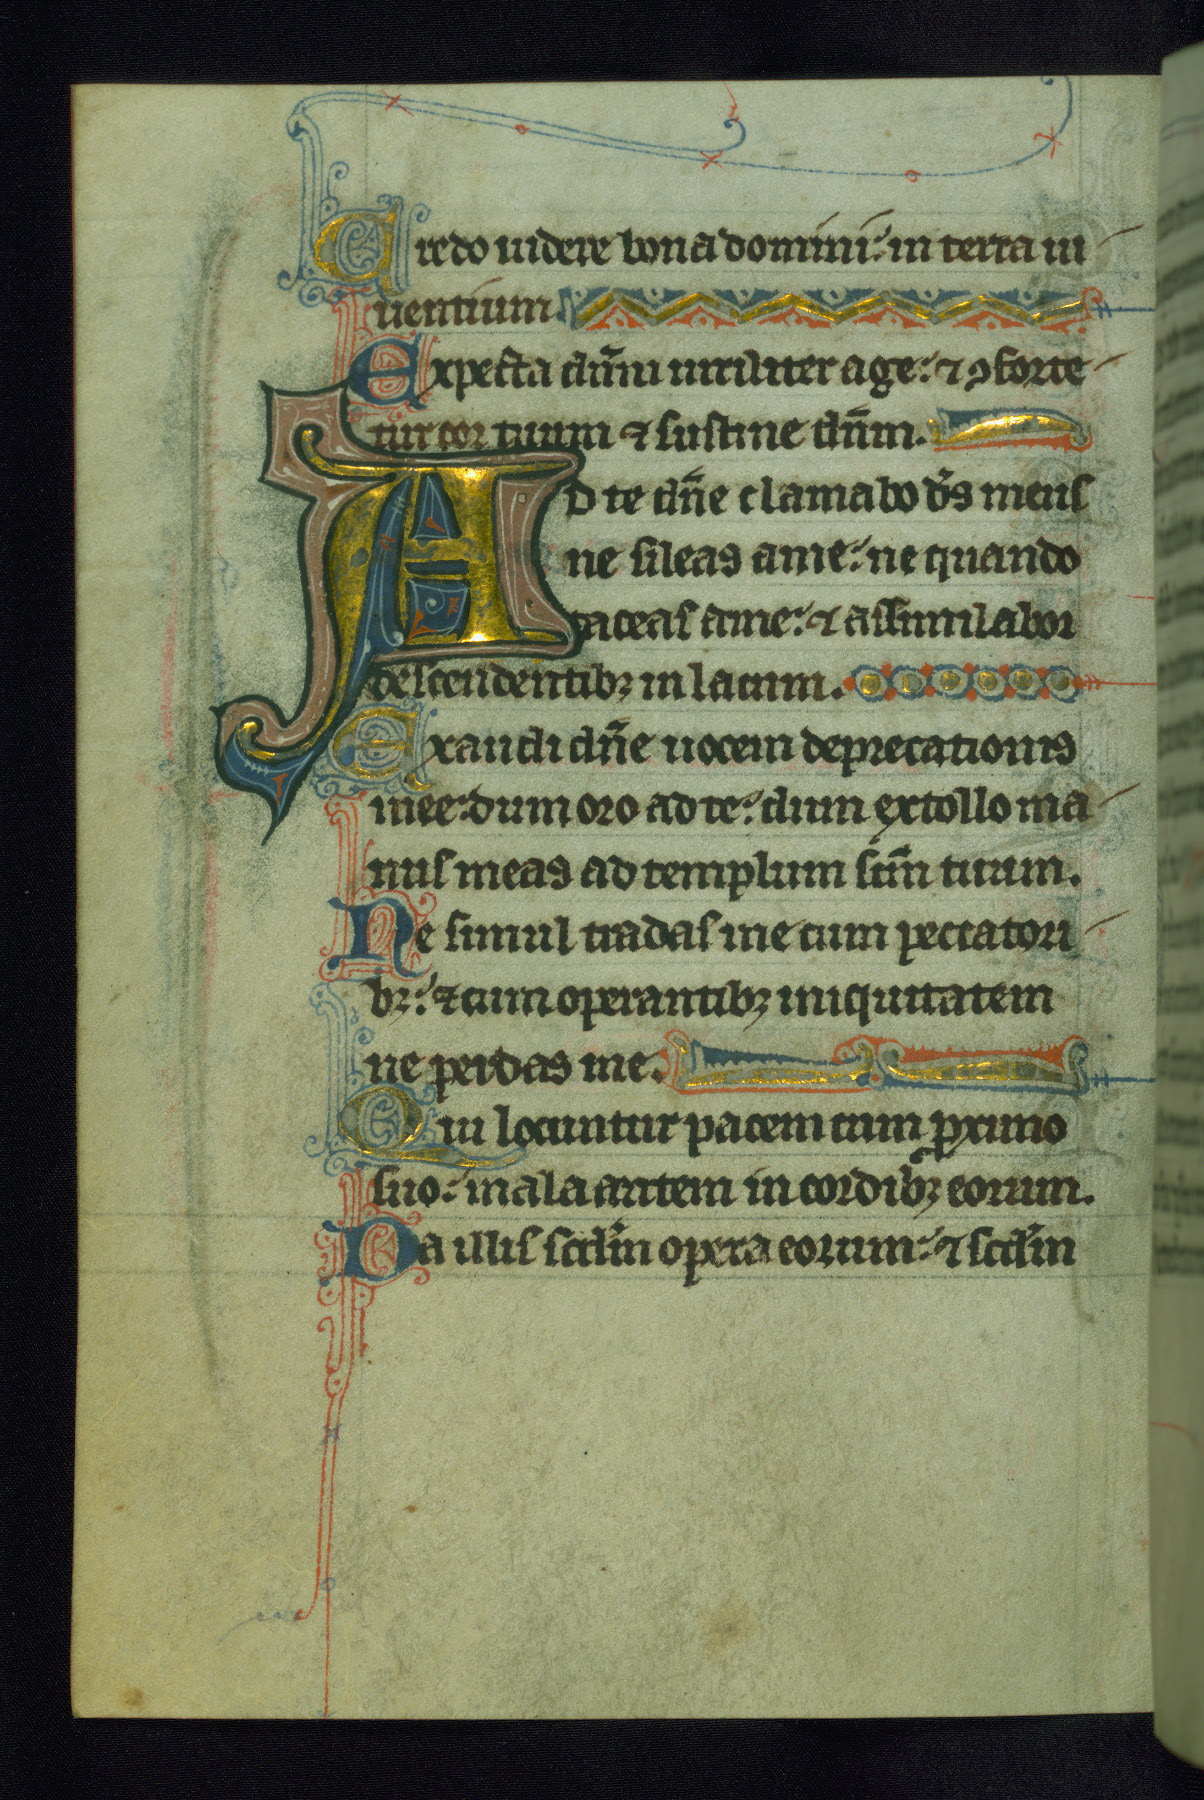 Credo uidere bona domini: in terra ui
uentium
Expecta dn̄m uiriliter age: ⁊ ꝯforte
tur cor tuum ⁊ sustine dn̄m.
AD te dn̄e clamabo ds̄ meus
ne sileas a me: ne quando
taceas a me: ⁊ assimilabor
descendentibꝫ in lacum.
Exaudi dn̄e uocem deprecationis
mee: dum oro ad te: dum extollo ma
nus meas ad templum sc̄m tuum.
Ne simul tradas me cum peccatori
bꝫ: ⁊ cum operantibꝫ iniquitatem
ne perdas me.
Qui locuntur pacem cum ꝓximo
suo: mala autem in cordibꝫ eorum.
Da illis scd̄m opera eorum: ⁊ scd̄m